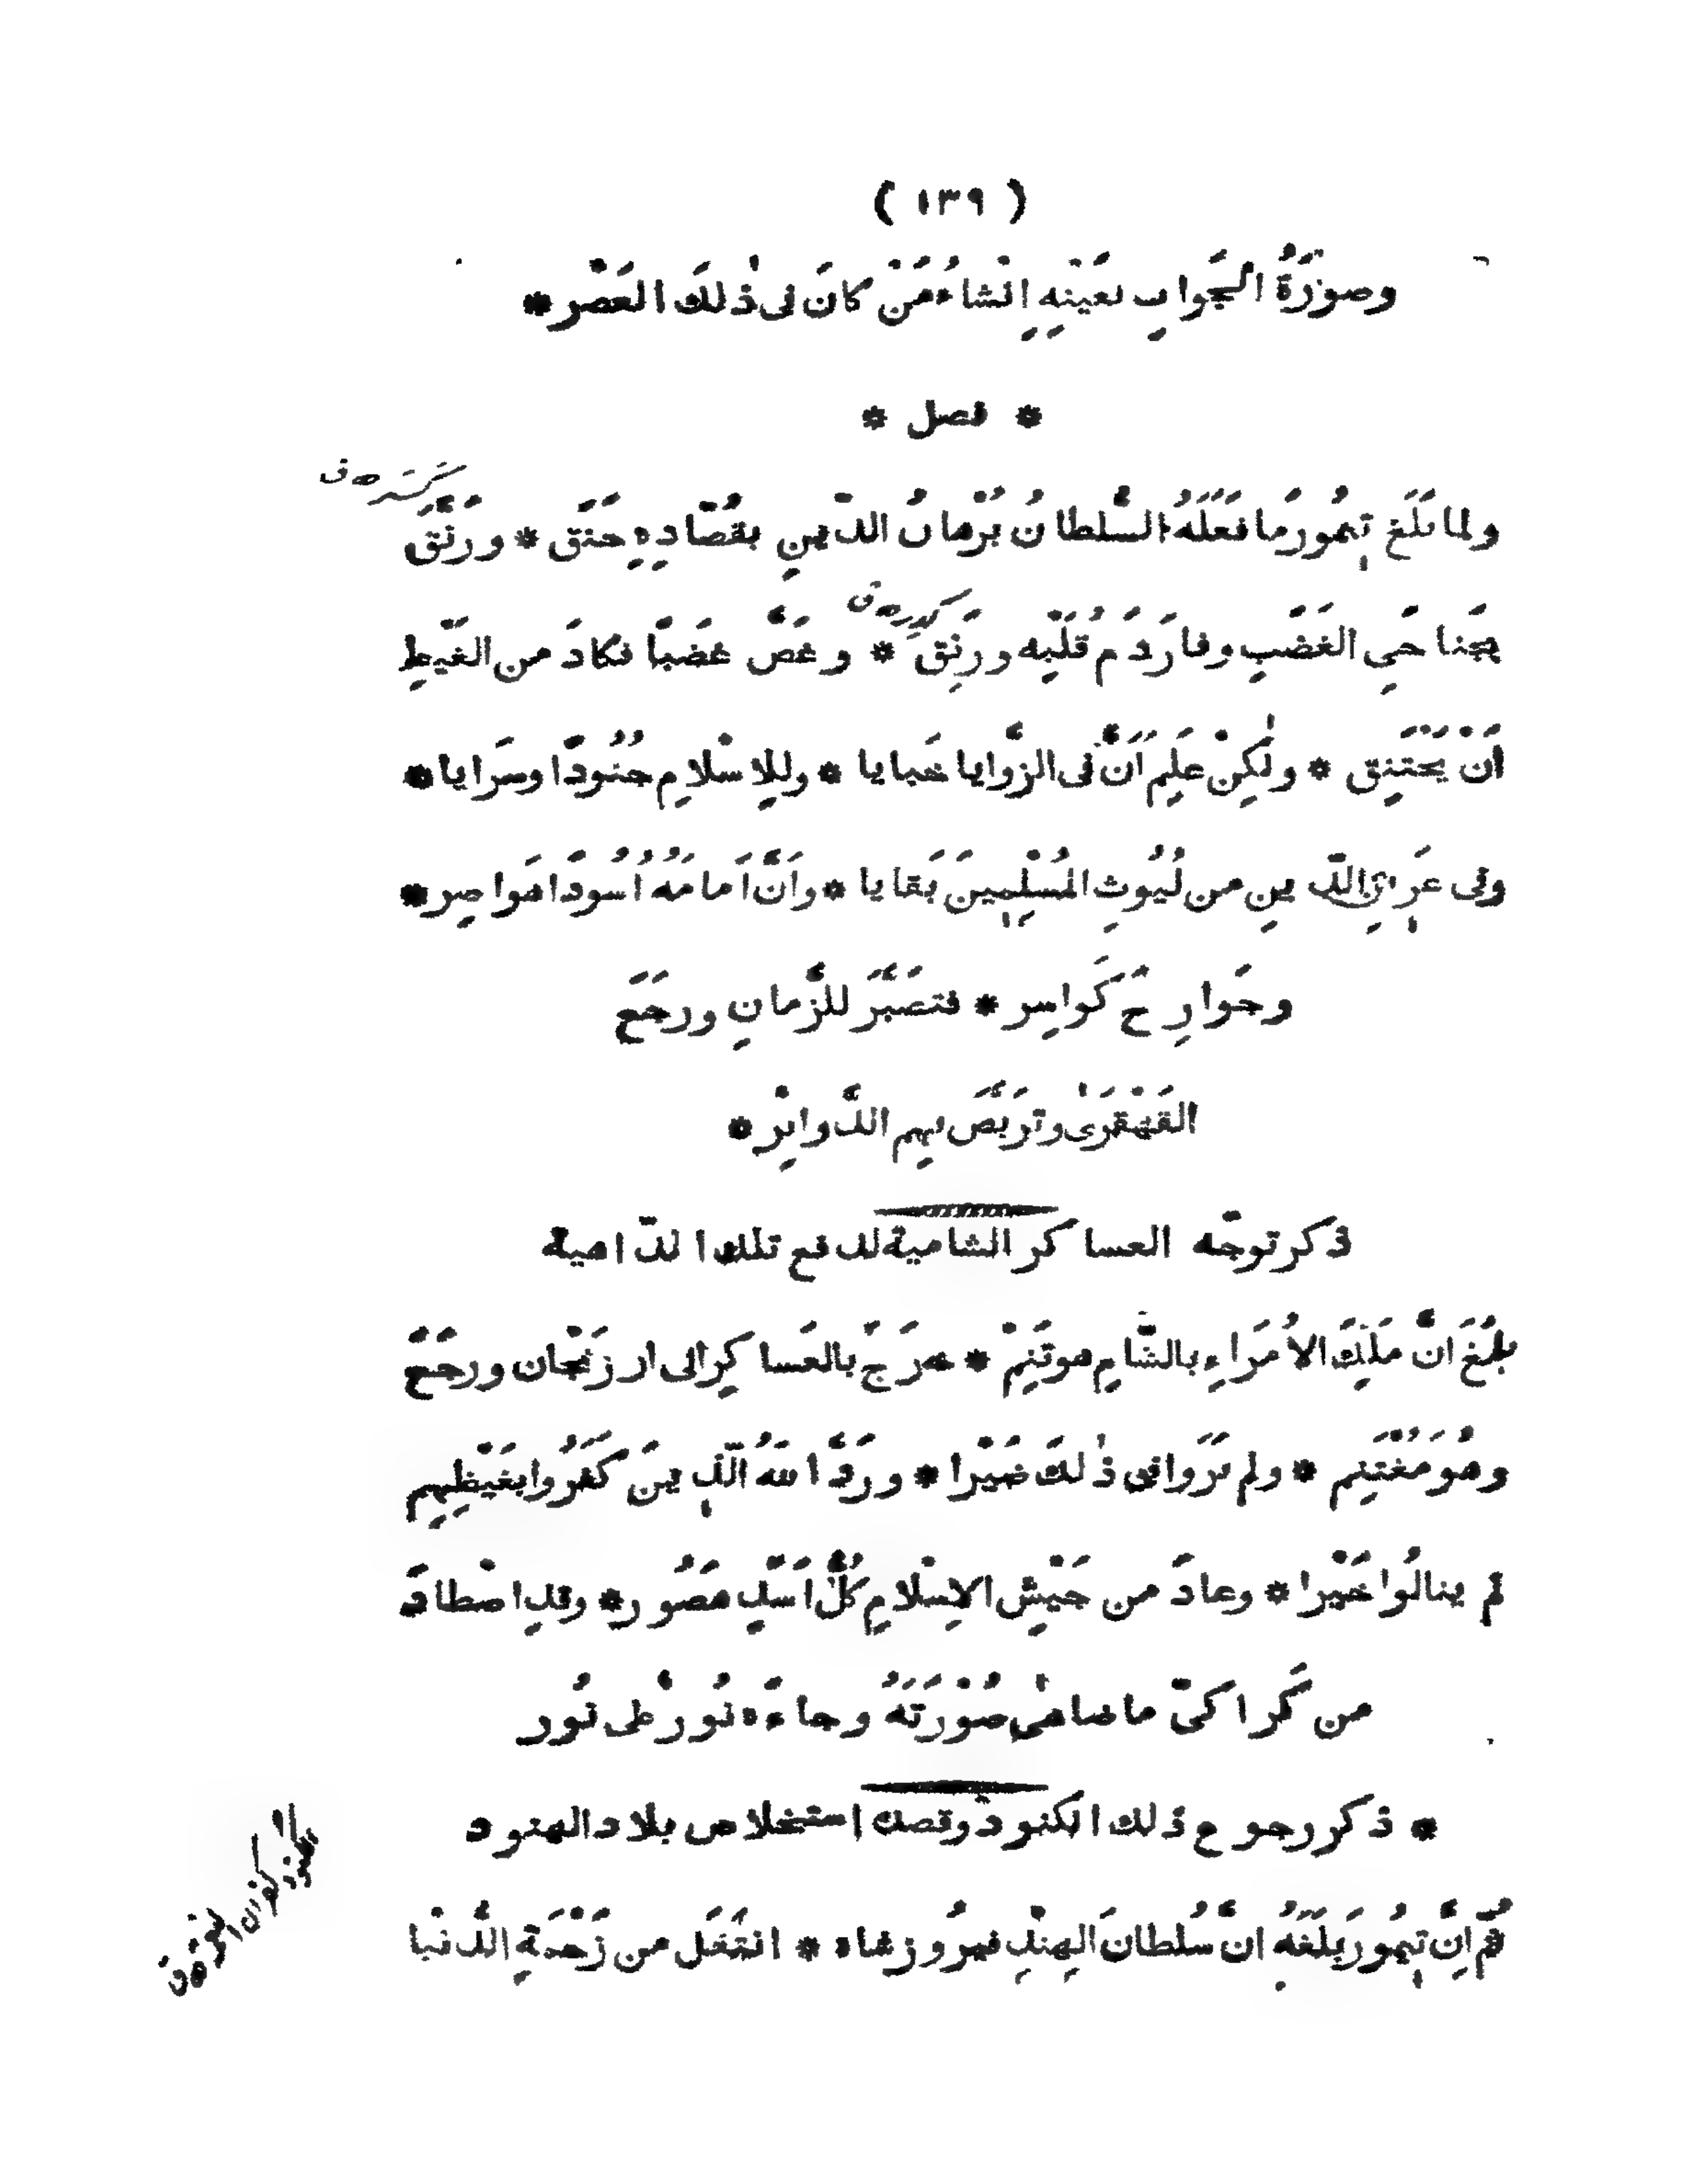 ( ١٣٩ )
وصُوْرَةُ الجَوابِ بعَيْنِهِ اِنْشاءُ مَنْ كانَ فى ذٰلكَ العَصْر *
* فصل *
ولما بَلَغَ تِيمُورَ مَا فَعَلَهُ السُّلطانُ بُرْهانُ الدّينِ بقُصّادِهِ حَنَقَ * ورَنَّقَ
بجَناحَىِ الغَضَبِ وفارَدَمُ قَلْبِه ورَنِقَ * وغَصَّ غضَبًا فكادَ من الغَيْظِ
اَنْ يَخْتَنِق * ولٰكِنْ عَلِمَ اَنَّ فى الزَّوايا خَبايا * وللاِسْلامِ جُنُودًا وسَرايا *
وفى عَرِينِ الدّينِ من لُيُوثِ المُسْلِمِينَ بَقايا * واَنَّ اَمامَهُ اُسُودًا هَواصِر *
وجَوارِحَ كَواسِر * فتصَبَّرَ للزَّمانِ ورجَعَ
القَهْقَرىٰ وتَرَبَّصَ بهِم الدَّوائِر *
ذكر توجّه العساكر الشامية لدفع تلك الدّاهية
بلَغَ انَّ مَلِكَ الاُمَراءِ بالشّامِ هو تَنَمْ * خرَجَ بالعَساكِر الى ارزَنْجان ورجَعَ
وهُوَ مُغْتَنِم * ولم يَرَوا فى ذٰلكَ ضَيْرا * ورَدَّ اللهُ الّذِينَ كَفَرُوا بغَيْظِهِم
لم ينالُوا خَيْرا * وعادَ من جَيْشِ الاِسْلامِ كُلُّ اَسَدٍ هَصُور * وقدِ اصْطادَ
من كُراكىّ ماضاهىٰ صُوْرَتَهُ وجاءَهُ نُورٌ على نُور
* ذكر رجوع ذلك الكنود وقصده استخلاص بلاد الهنود
ثُمَّ اِنَّ تِيمُورَ بلَغَهُ انَّ سُلطانَ الهِنْدِ فيرُوزشاه * انتَقَل من زَحْمَةِ الدُّنْيا